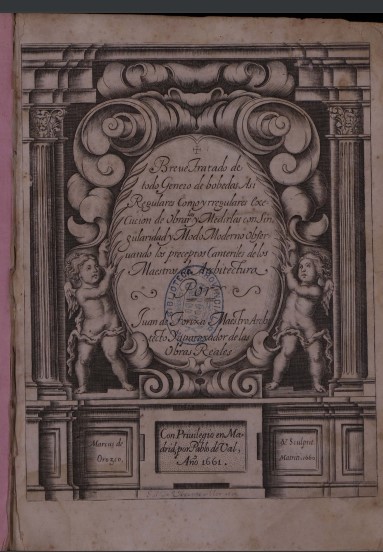 Breve Tratado de
todo Genero de bobedas Asi
Regulares Como yrregulares Exe-
cucion de Obrar y Medirlas con Sin
gularidad y Modo Moderno Obser
uando los preceptos Canteriles de los
Maestros de Architectura
Por
Juan de Torixa Maestro Archi
tecto Y aparexador de las
Obras Reales
Marcus de
Orozco,
Con Privilegio en Ma-
drid, por Pablo de Val,
Año 1661.
Sculpsit